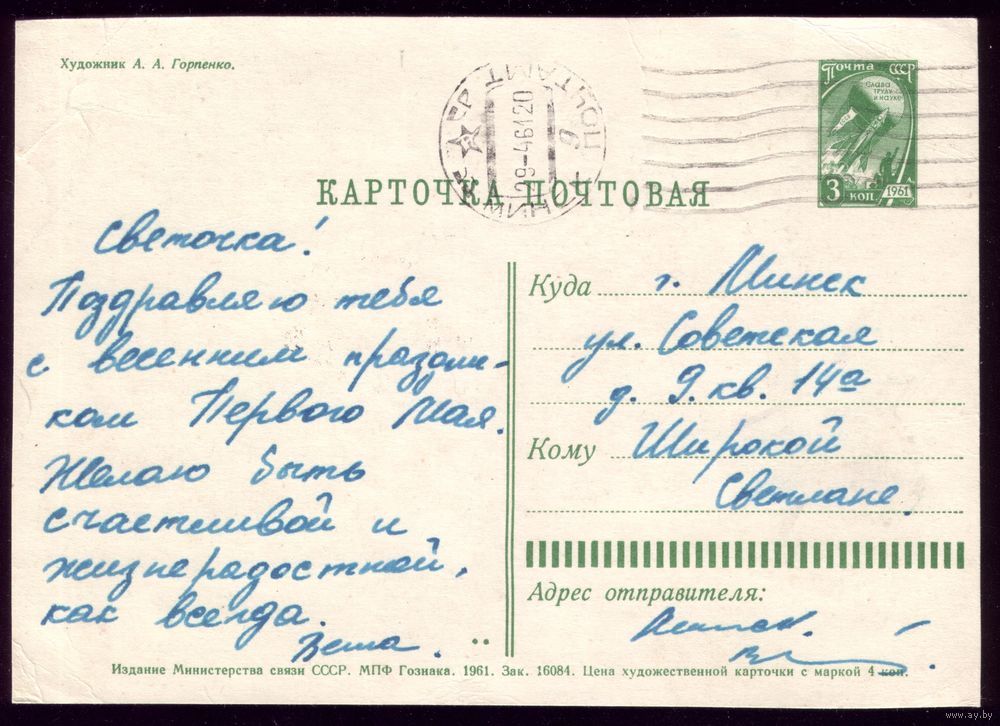 Художник А. А. Горпенко.
Почта СССР
СЛАВА
ТРУДУ
И НАУКЕ
3 КОП
1961
МИНСК ПОЧТАМТ
29-46120
КАРТОЧКА ПОЧТОВАЯ
Светочка!
Поздравляю тебя
с весенним праздни-
ком Первого Мая.
Желаю быть
счастливой и
жизнерадостной,
как всегда.
Куда г. Минск
ул. Советская
д. 9. кв. 14а
Кому Широкой
Светлане.
Адрес отправителя:
Издание Министерства связи СССР. МПФ Гознака. 1961. Зак. 16084. Цена художественной карточки с маркой 4 коп.
www.ay.by